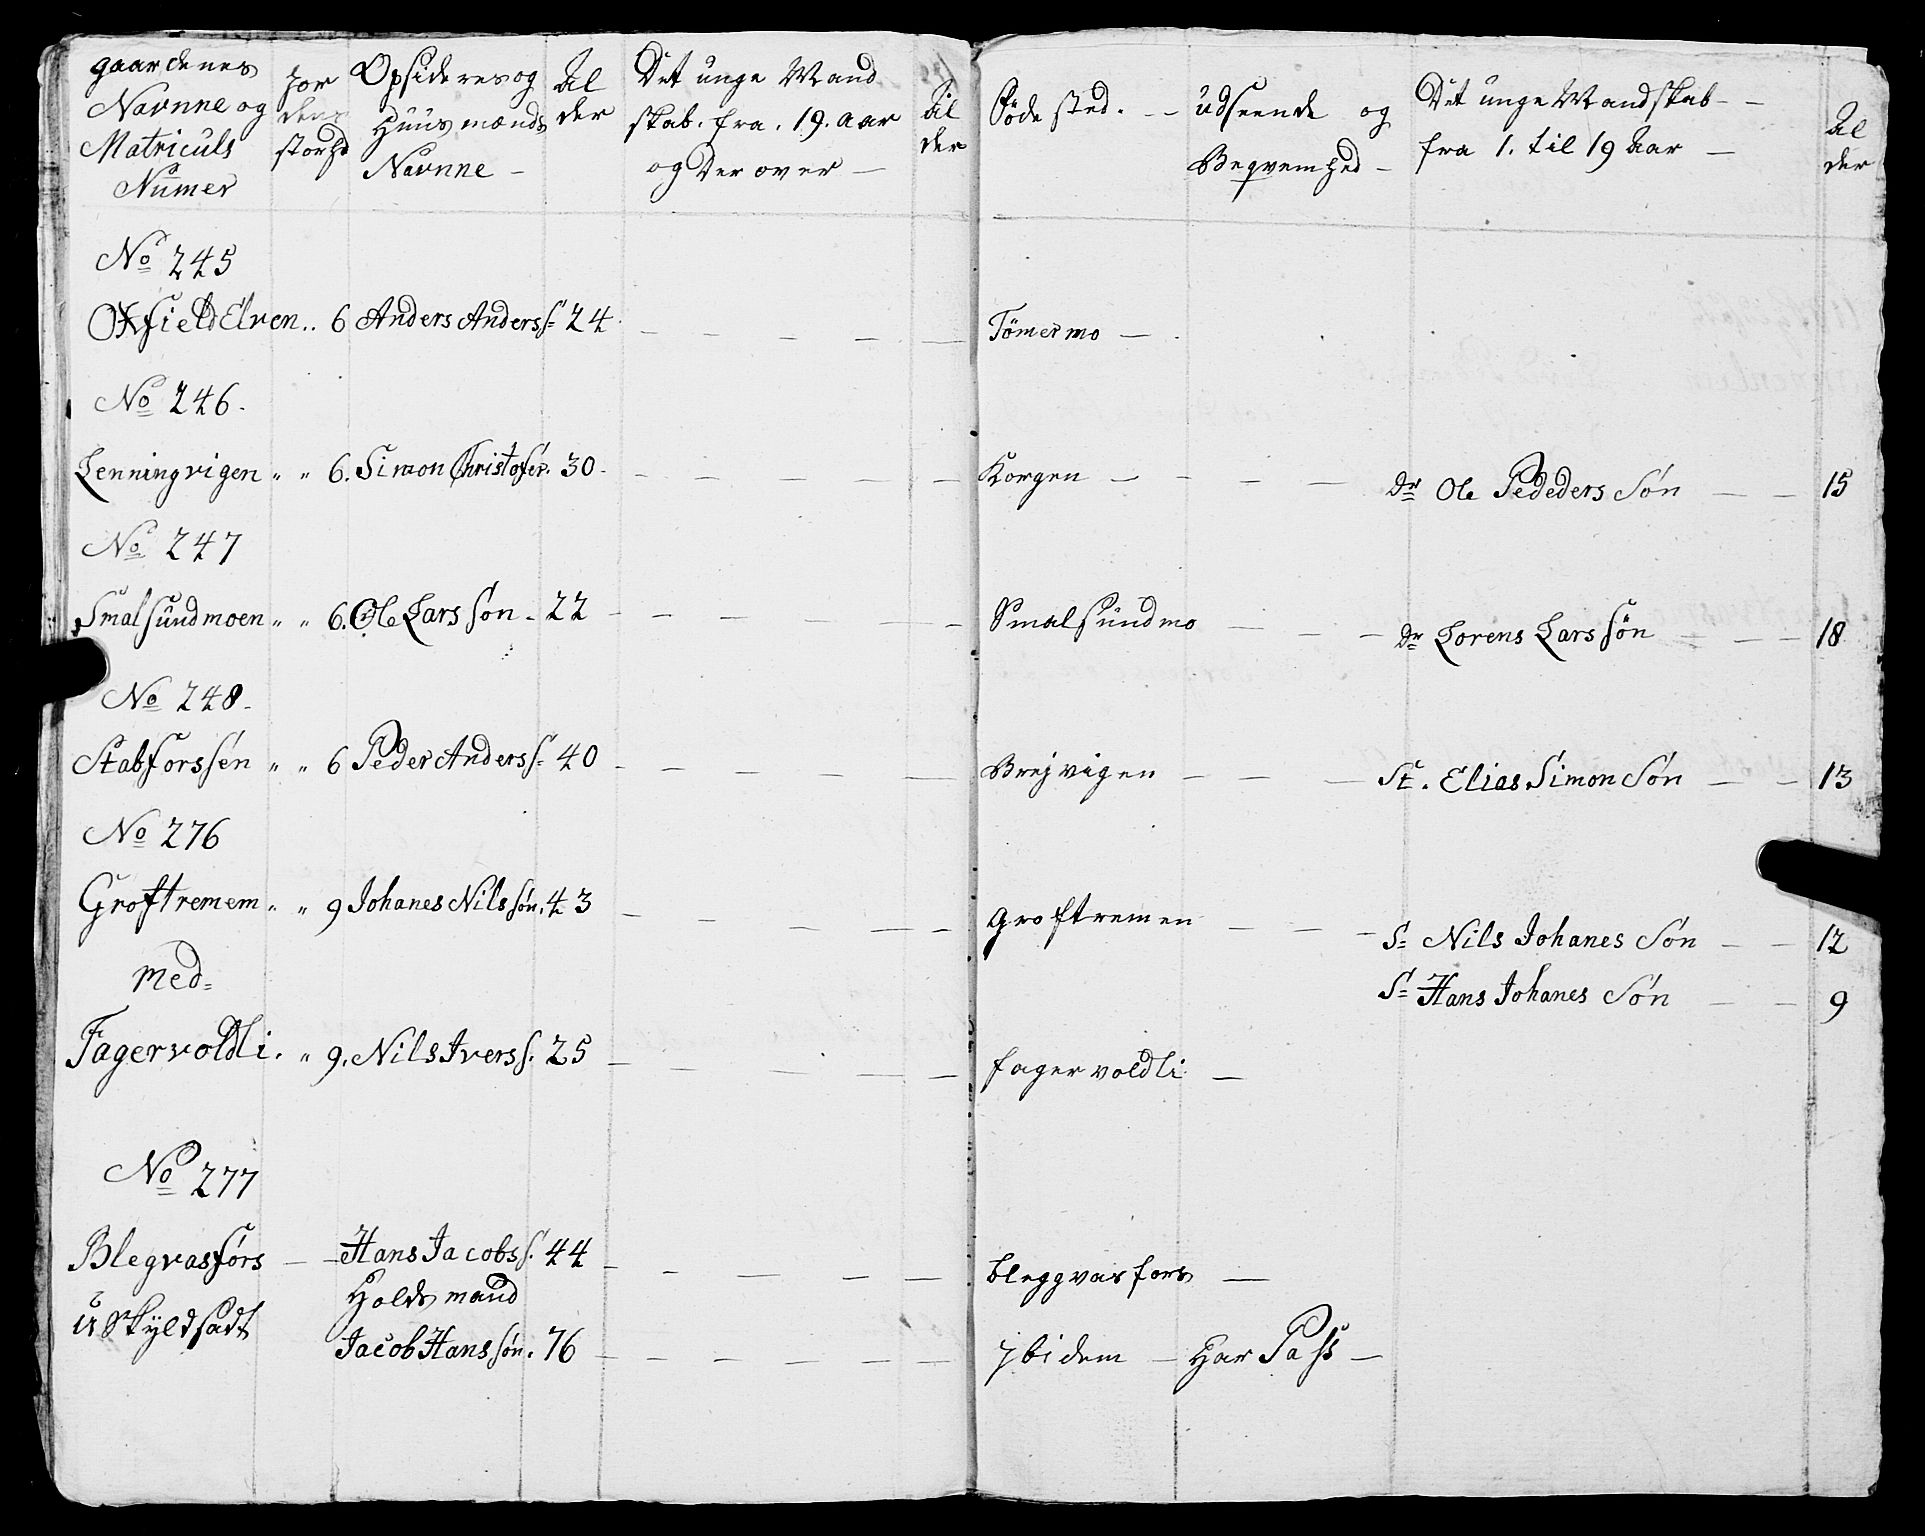 gaardenes Navnne og Matriculs Numer
Jor dens storhd
Opsideres og Huusmænds Navnne -
Al der
Det unge Mand skab. fra. 19. aar og Der over -
Al der
Føde sted. - -
Udseende og Beqvemhed -
Det unge Mandskab - - fra 1. til 19 Aar -
Al der
No 245
Oxfield Elven .. 6 Anders Anderss= 24 - - - - - Tömermo -
No 246.
Lenningvigen " " 6. Simon Christofer. 30 - - - - - Korgen - - - - Dr Ole Pededers Søn - - 15
No 247
Smalsundmoen " " 6. Ole Lars Søn - 22 - - - - - - Smalsundmo - - - - Dr Lorens Lars Søn - - - 18
No 248
Stabforssen " " 6 Peder Anderss= 40 - - - - - - Brejvigen - - - St. Elias Simon Søn - - 13
No 276
Groftremem " " 9 Johanes Nils søn. 43 - - - - - groftremen - - - S= Nils Johanes Søn - - 12
med=
S= Hans Johanes Søn - - 9
Fagervoldli. " 9. Nils Iverss. 25 - - - - - fagervoldli -
No 277
Blegvasførs - - Hans Jacobss. 44 - - - - - bleggvasfors -
Holds mand
Uskyldsadt
Jacob Hans søn. 76 - - - - - - ybidem - Har Pass -